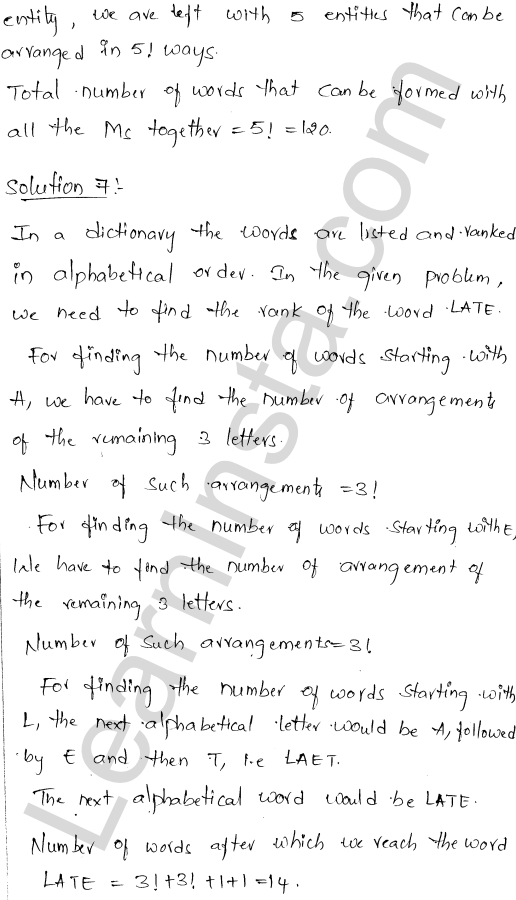 entity, we are left with 5 entities that can be
arranged in 5! ways.
Total number of words that can be formed with
all the Ms together = 5! = 120.
Solution 7:-
In a dictionary the words are listed and ranked
in alphabetical order. In the given problem,
we need to find the rank of the word LATE.
For finding the number of words starting with
A, we have to find the number of arrangements
of the remaining 3 letters.
Number of such arrangements = 3!
For finding the number of words starting with E,
we have to find the number of arrangement of
the remaining 3 letters.
Number of such arrangements = 3!
For finding the number of words starting with
L, the next alphabetical letter would be A, followed
by E and then T, i.e LAET.
The next alphabetical word would be LATE.
Number of words after which we reach the word
LATE = 3! + 3! + 1 + 1 = 14.
LearnInsta.com